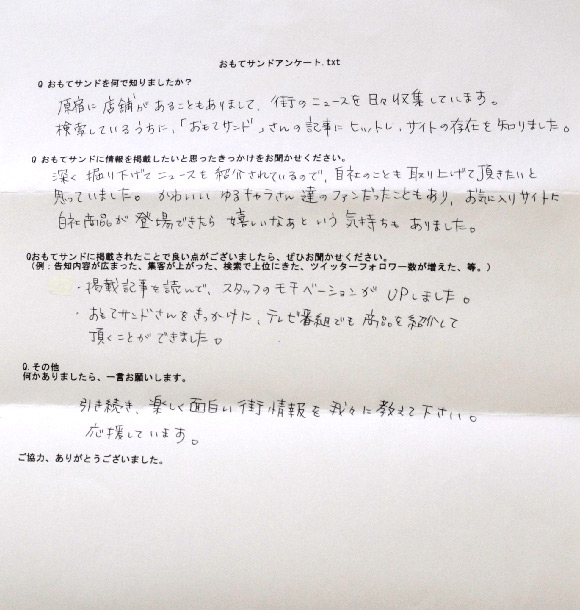 おもてサンドアンケート.txt
Q おもてサンドを何で知りましたか？
原宿に店舗があることもありまして、街のニュースを日々収集しています。
検索しているうちに、「おもてサンド」さんの記事にヒットし、サイトの存在を知りました。
Q おもてサンドに情報を掲載したいと思ったきっかけをお聞かせください。
深く掘り下げてニュースを紹介されているので、自社のことも取り上げて頂きたいと
思っていました。かわいいゆるキャラさん達のファンだったこともあり、お気に入りサイトに
自社商品が登場できたら嬉しいなぁという気持ちもありました。
Qおもてサンドに掲載されたことで良い点がございましたら、ぜひお聞かせください。
（例：告知内容が広まった、集客が上がった、検索で上位にきた、ツイッターフォロワー数が増えた、等。）
・掲載記事を読んで、スタッフのモチベーションがUPしました。
・おもてサンドさんをきっかけに、テレビ番組でも商品を紹介して
頂くことができました。
Q.その他
何かありましたら、一言お願いします。
引き続き、楽しく面白い街情報を我々に教えて下さい。
応援しています。
ご協力、ありがとうございました。